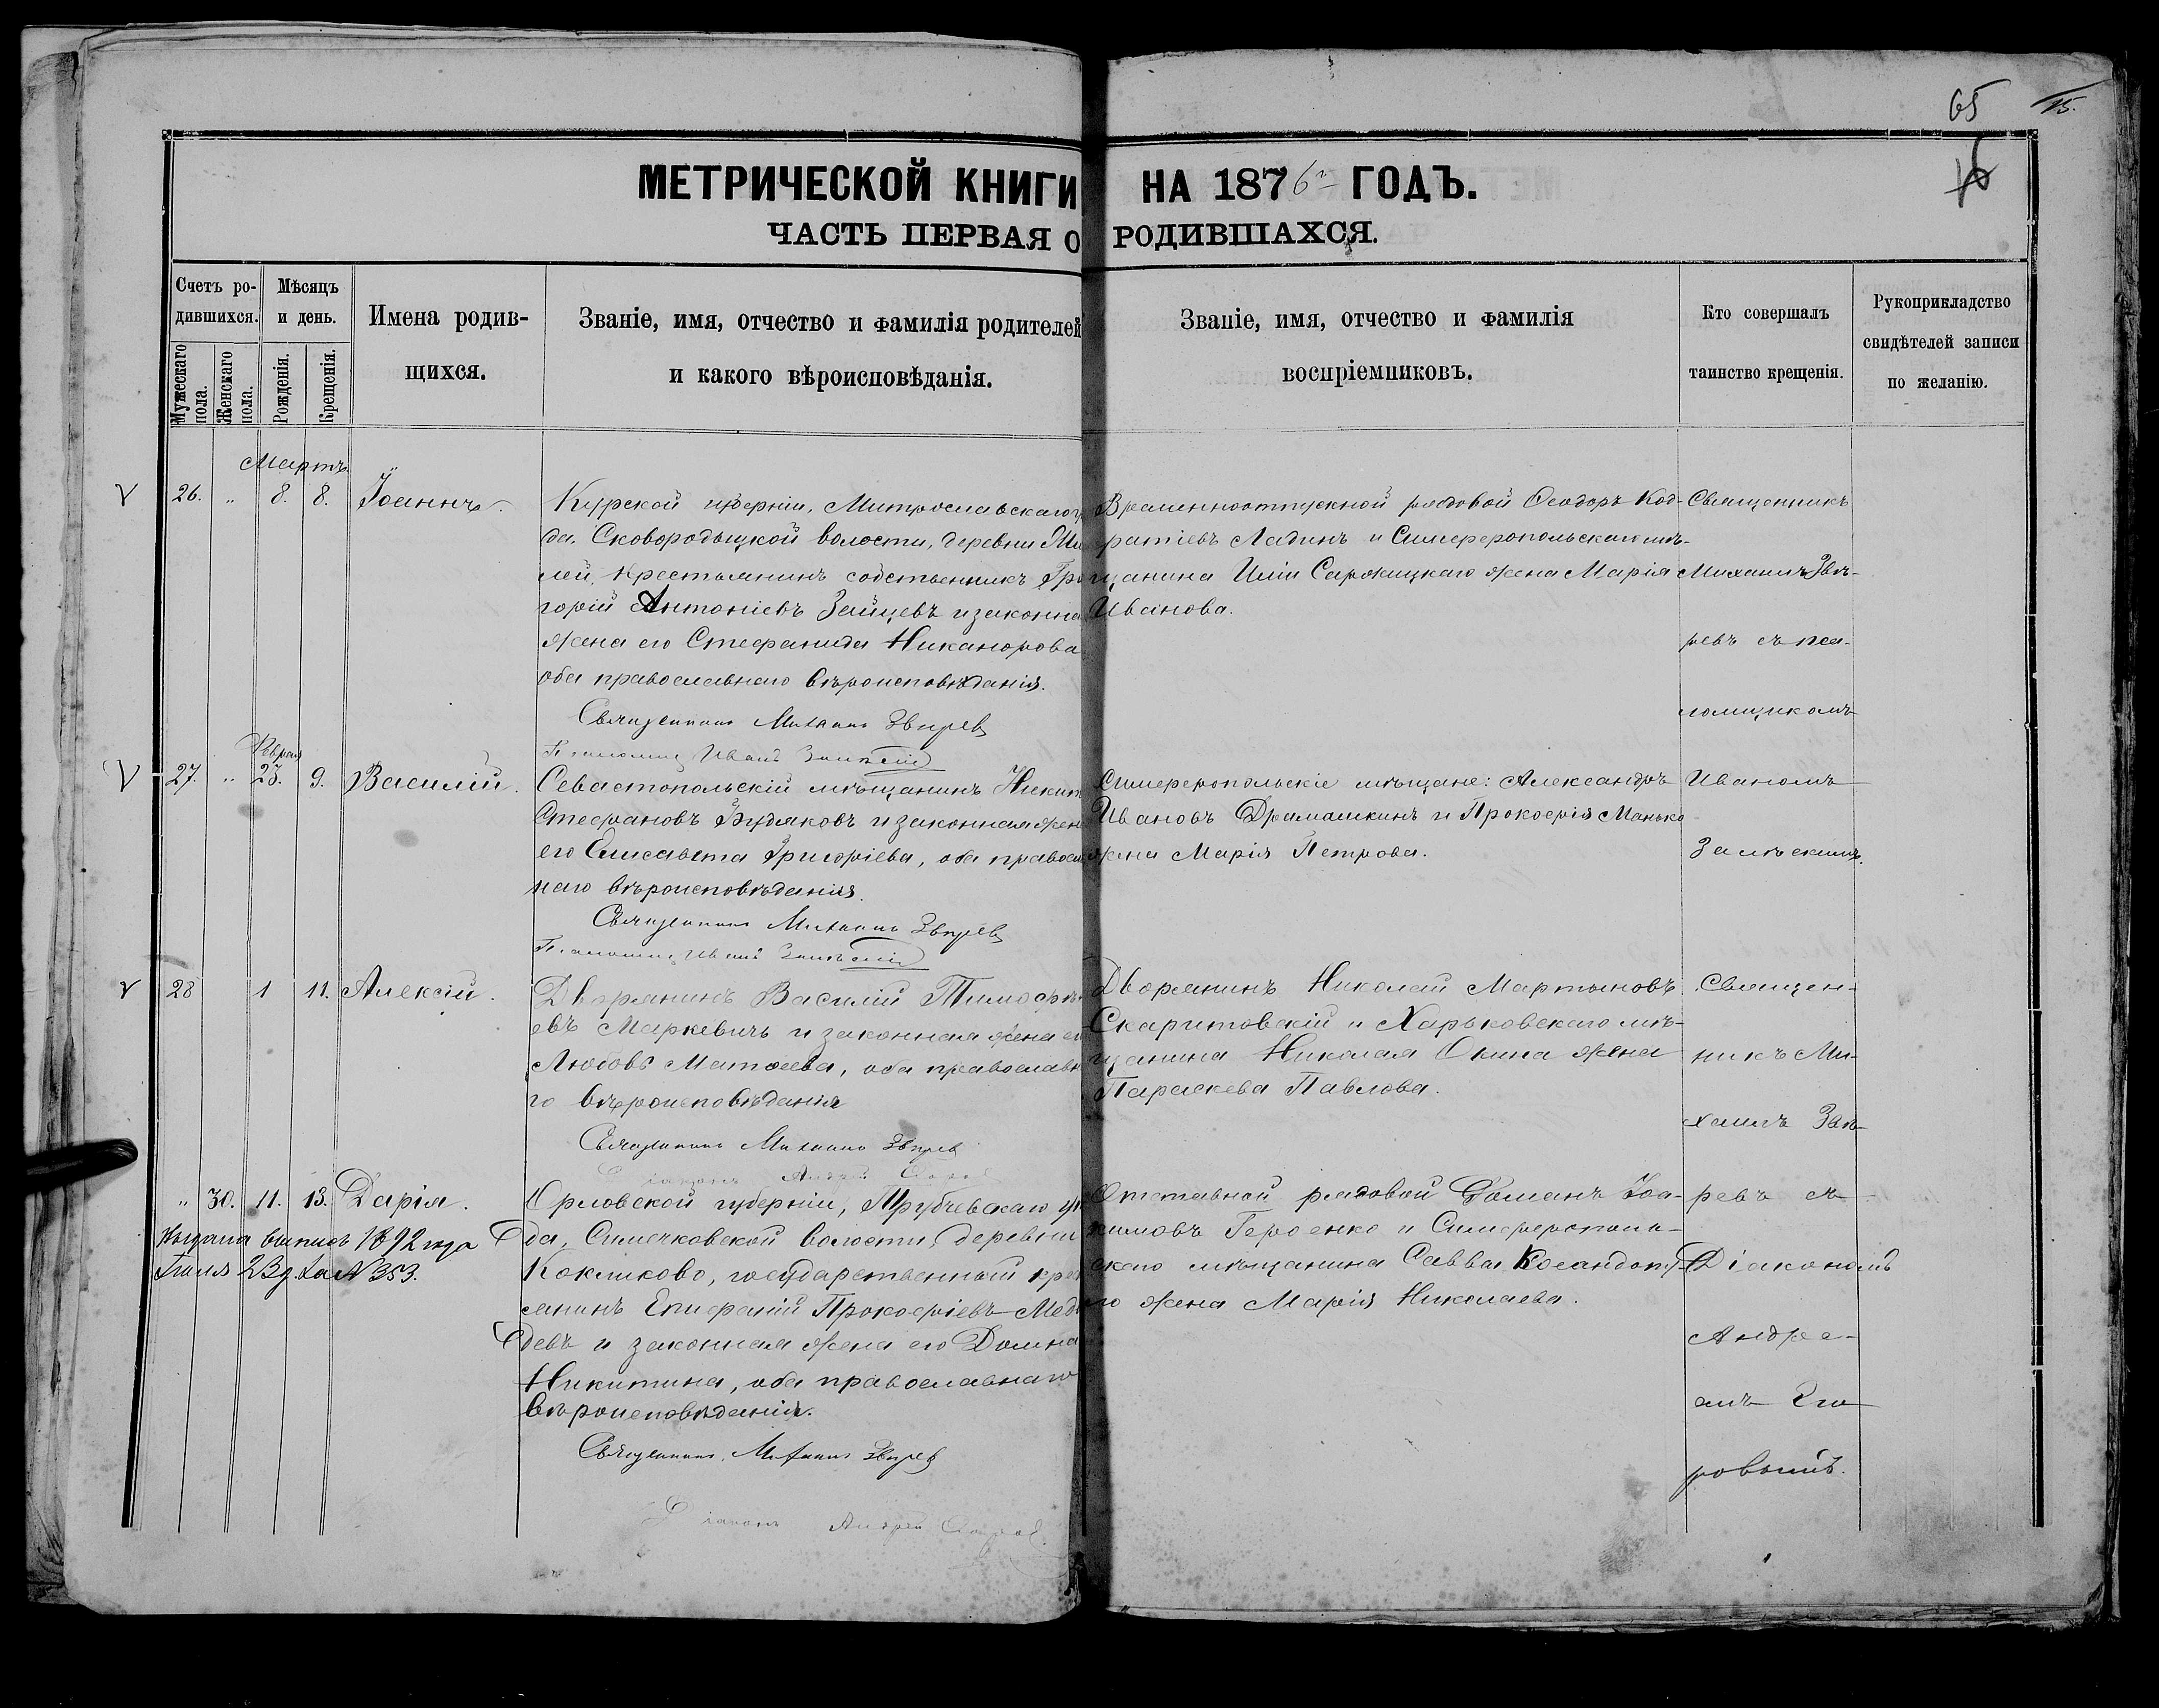 65 15.
МЕТРИЧЕСКОЙ КНИГИ НА 1876 ГОДЪ.
ЧАСТЬ ПЕРВАЯ О РОДИВШАХСЯ.
Счетъ ро-
дившихся.
Мужескаго пола.
Женскаго пола.
Мѣсяцъ
и день.
Рожденія.
Крещенія.
Имена родив-
шихся.
Званіе, имя, отчество и фамилія родителей
и какого вѣроисповѣданія.
Званіе, имя, отчество и фамилія
воспріемниковъ.
Кто совершалъ
таинство крещенія.
Рукоприкладство
свидѣтелей записи
по желанію.
Мартъ
26. " 8. 8. Іоаннъ.
Курской губерніи, Митрославскаго
да, Сковородыцкой волости, деревни Ми
лей, крестьянинъ собственникъ Гри
горій Антоніевъ Зайцевъ и законна
жена его Стефанида Никанорова
оба православнаго вѣроисповѣданія.
Священникъ Михаилъ Звѣрев
Иванъ
Временноотпускной рядовой Ѳеодоръ Код-
ратіевъ Ладинъ и Симферопольскаго мѣ-
щанина Иліи Саржицкаго жена Марія
Иванова.
Священникъ
Михаилъ Звѣ-
ревъ съ пса-
ломщикомъ
27. " 23. 9. Василій.
Севастопольскій мѣщанинъ Никит
Стефановъ Будяковъ и законная жен
его Елисавета Григоріева, оба правосл
наго вѣроисповѣданія.
Священникъ Михаилъ Звѣрев
Иванъ
Симферопольскіе мѣщане: Александръ
Ивановъ Драмашкинъ и Прокофія Манько
жена Марія Петрова.
Иваномъ
Залѣскимъ.
28 1 11. Алексій.
Дворянинъ Василій Тимофѣ
евъ Маркевичъ и законная жена ег
Любовь Матѳеева, оба православн
го вѣроисповѣданія
Священникъ Михаилъ Звѣрев
Діаконъ Андрей
Дворянинъ Николай Мартыновъ
Скаритовскій и Харьковскаго мѣ-
щанина Николая Окина жена
Параскева Павлова.
Священ-
никъ Ми-
хаилъ Звѣ-
" 30. 11. 13. Дарія.
Выдана выпись 1892 года
Іюля 23 д. за № 353.
Орловской губерніи, Трубчевскаго уѣ
да, Симечковской волости, деревни
Кокликово, государственный кре
янинъ Епифаній Прокофіевъ Медв
девъ и законная жена его Домна
Никитина, оба православнаго
вѣроисповѣданія.
Священникъ Михаилъ Звѣрев
Діаконъ Андрей
Отставной рядовой Романъ Іоа-
кимовъ Героенко и Симферополь-
скаго мѣщанина Саввы
го жена Марія Николаева.
ревъ съ
Діакономъ
Андре-
емъ Его
ровымъ.